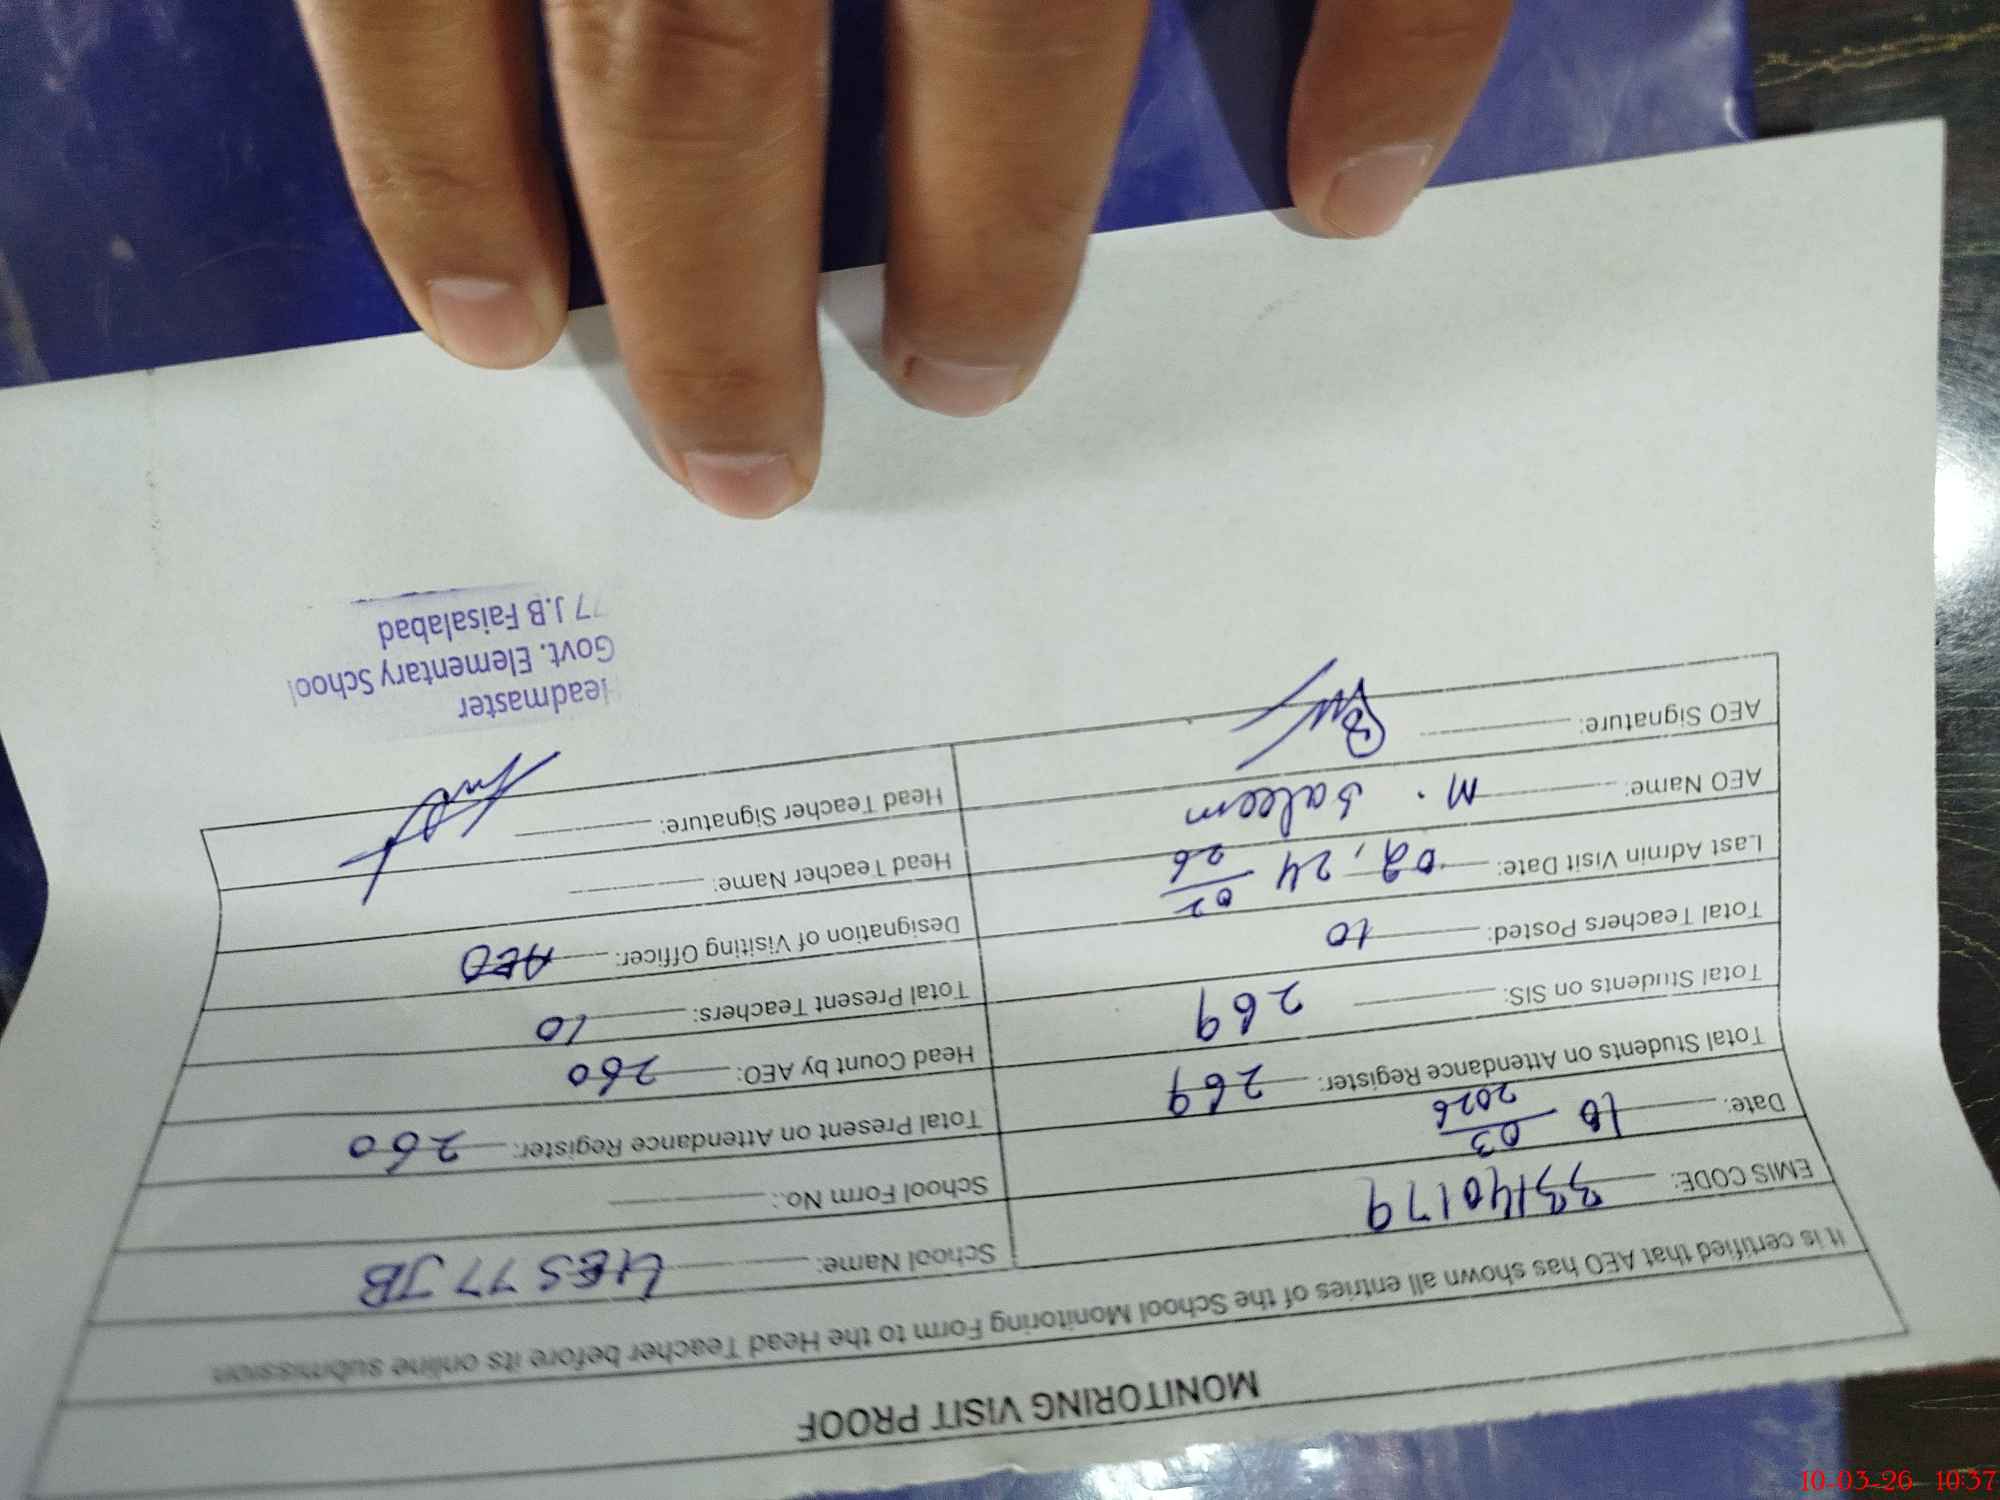 MONITORING VISIT PROOF
It is certified that AEO has shown all entries of the School Monitoring Form to the Head Teacher before its online submission
EMIS CODE: 33140179
School Name: GES 77 JB
Date: 10-03/2026
School Form No.:
Total Students on Attendance Register: 269
Total Present on Attendance Register: 260
Total Students on SIS: 269
Head Count by AEO: 260
Total Teachers Posted: 10
Total Present Teachers: 10
Last Admin Visit Date: 02, 24-02/26
Designation of Visiting Officer: AEO
AEO Name: M. Saleem
Head Teacher Name:
AEO Signature:
Head Teacher Signature:
Headmaster
Govt. Elementary School
77 J.B Faisalabad
10-03-26 10:37